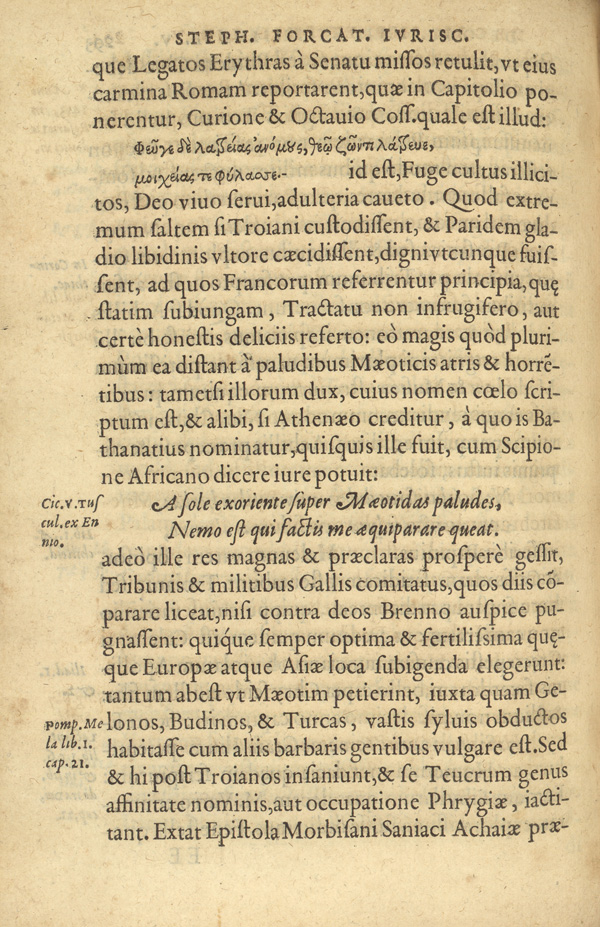 STEPH. FORCAT. IVRISC.
que Legatos Erythras à Senatu missos retulit, vt eius
carmina Romam reportarent, quæ in Capitolio po-
nerentur, Curione & Octauio Coss. quale est illud:
Φεῦγε δὲ λαβείας ἀνόμους, θεῷ ζῶντι λάβευε,
μοιχείας τε φύλασσε.- id est, Fuge cultus illici-
tos, Deo viuo serui, adulteria caueto. Quod extre-
mum saltem si Troiani custodissent, & Paridem gla-
dio libidinis vltore cæcidissent, digni vtcunque fuis-
sent, ad quos Francorum referrentur principia, quę
statim subiungam, Tractatu non infrugifero, aut
certè honestis deliciis referto: eò magis quòd pluri-
mùm ea distant à paludibus Mæoticis atris & horrē-
tibus: tametsi illorum dux, cuius nomen cœlo scri-
ptum est, & alibi, si Athenæo creditur, à quo is Ba-
thanatius nominatur, quisquis ille fuit, cum Scipio-
ne Africano dicere iure potuit:
Cic. V. Tus
cul. ex En
nio.
A sole exoriente super Mæotidas paludes,
Nemo est qui factis me æquiparare queat.
adeò ille res magnas & præclaras prosperè gessit,
Tribunis & militibus Gallis comitatus, quos diis cō-
parare liceat, nisi contra deos Brenno auspice pu-
gnassent: quiq́ue semper optima & fertilissima quę-
que Europæ atque Asiæ loca subigenda elegerunt:
tantum abest vt Mæotim petierint, iuxta quam Ge-
Pomp. Me
la lib. 1.
cap. 21.
lonos, Budinos, & Turcas, vastis syluis obductos
habitasse cum aliis barbaris gentibus vulgare est. Sed
& hi post Troianos insaniunt, & se Teucrum genus
affinitate nominis, aut occupatione Phrygiæ, iacti-
tant. Extat Epistola Morbisani Saniaci Achaiæ præ-